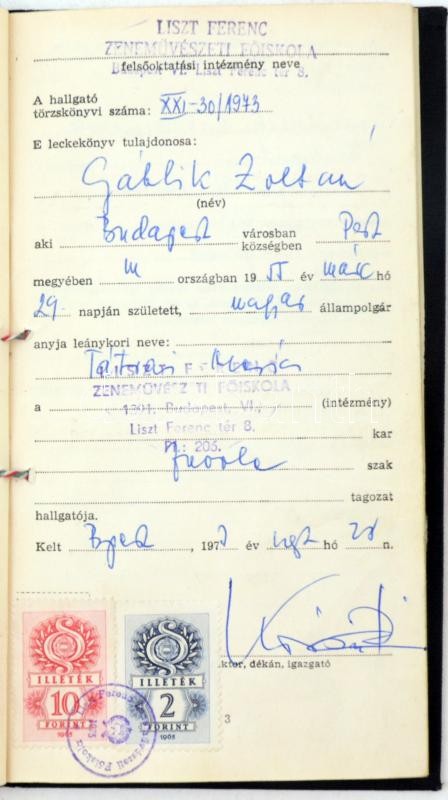 LISZT FERENC
ZENEMŰVÉSZETI FŐISKOLA
Budapest VI. Liszt Ferenc tér 8.
felsőoktatási intézmény neve
A hallgató
törzskönyvi száma: XXI-30/1973
E leckekönyv tulajdonosa:
Gáblik Zoltán
(név)
aki Budapest városban Pest
községben
megyében m országban 19 55 év márc hó
29. napján született, magyar állampolgár
anyja leánykori neve:
Tátrai Mária
ZENEMŰVÉSZETI FŐISKOLA
a 1391. Budapest, VI., (intézmény)
Liszt Ferenc tér 8.
kar
Pf.: 206.
fuvola szak
tagozat
hallgatója.
Kelt Bpest, 197 3 év szept hó 28 n.
rektor, dékán, igazgató
ILLETÉK ILLETÉK
10 2
FORINT FORINT
1965 1965
3